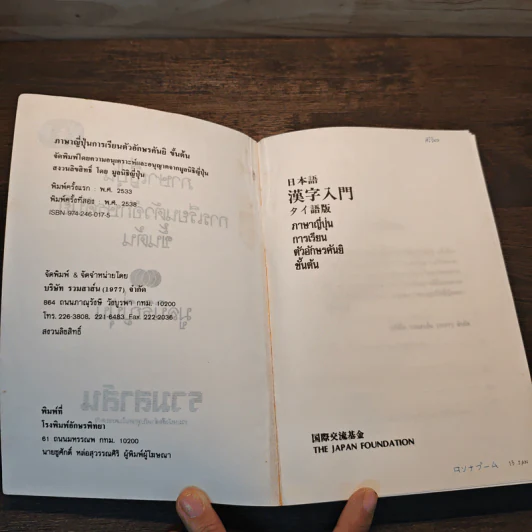 ภาษาญี่ปุ่นการเรียนตัวอักษรคันยิ ขั้นต้น
จัดพิมพ์โดยความอนุเคราะห์และอนุญาตจากมูลนิธิญี่ปุ่น
สงวนลิขสิทธิ์ โดย มูลนิธิญี่ปุ่น
พิมพ์ครั้งแรก : พ.ศ. 2533
พิมพ์ครั้งที่สอง : พ.ศ. 2538
ISBN-974-246-017-5
จัดพิมพ์ & จัดจำหน่ายโดย
บริษัท รวมสาส์น (1977) จำกัด
864 ถนนภาณุรังษี วังบูรพา กทม. 10200
โทร. 226-3808, 221-6483 Fax 222-2036
สงวนลิขสิทธิ์
พิมพ์ที่
โรงพิมพ์อักษรพิทยา
61 ถนนมหรรณพ กทม. 10200
นายชูศักดิ์ หล่อสุวรรณศิริ ผู้พิมพ์ผู้โฆษณา
日本語
漢字入門
タイ語版
ภาษาญี่ปุ่น
การเรียน
ตัวอักษรคันยิ
ขั้นต้น
国際交流基金
THE JAPAN FOUNDATION